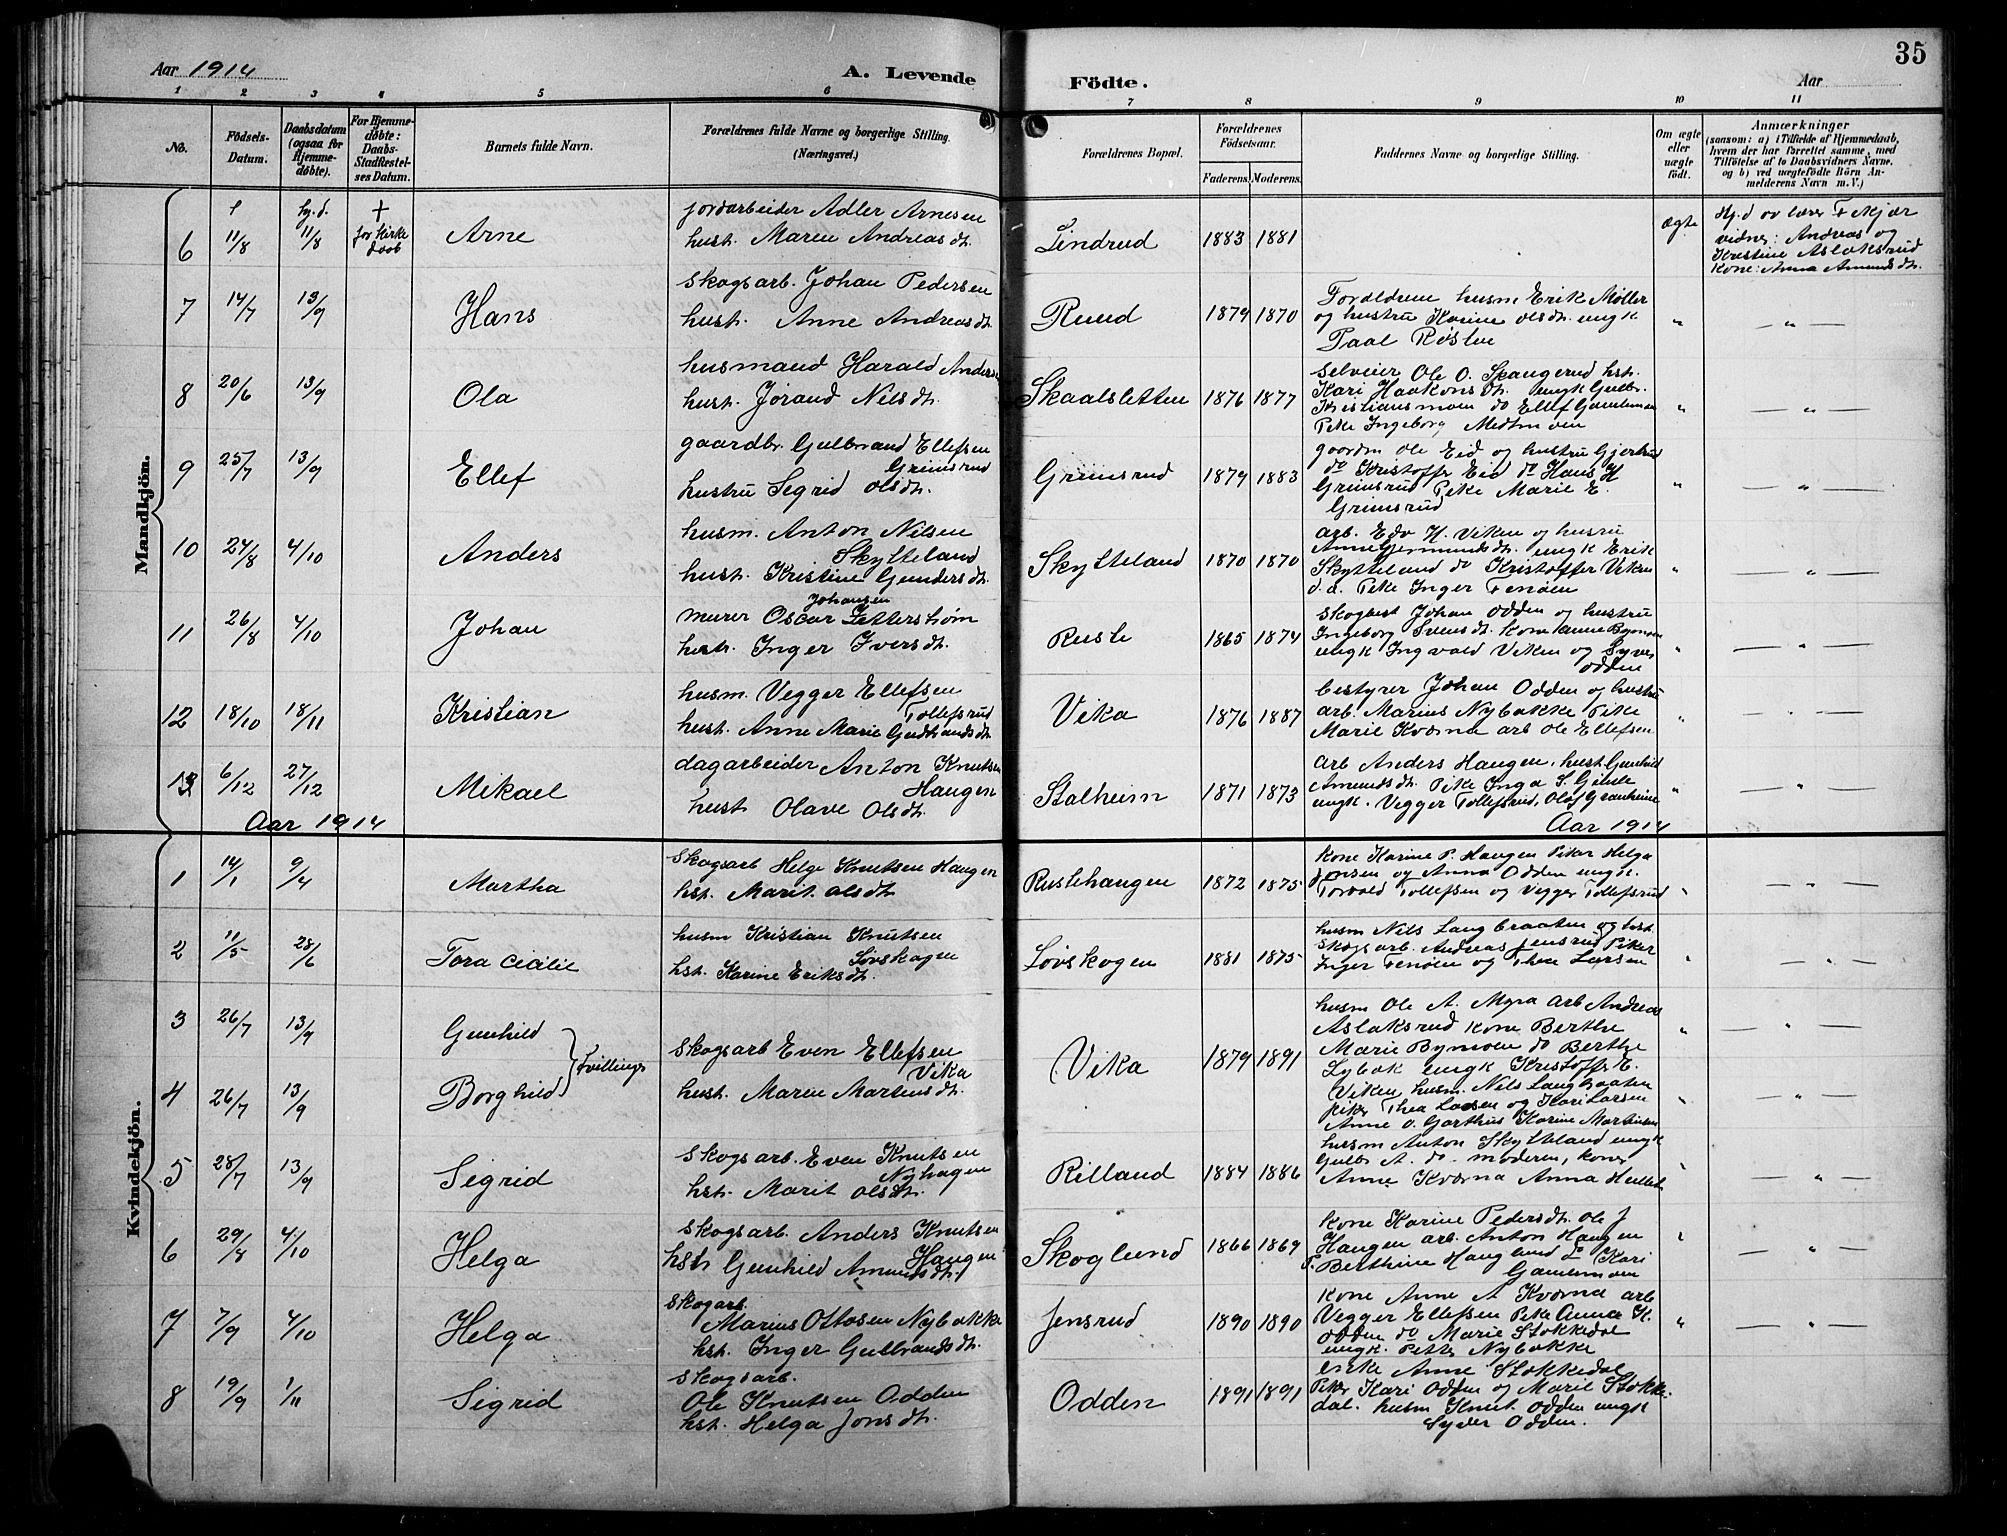 Aar 1914
A. Levende
Födte.
Aar
35
1 2 3 4 5 6 7 8 9 10 11
No.
Födsels-Datum.
Daabsdatum (ogsaa for Hjemme-döbte).
For Hjemme-döbte: Daabs-Stadfæstel-ses Datum.
Barnets fulde Navn.
Forældrenes fulde Navne og borgerlige Stilling. (Næringsvei.)
Forældrenes Bopæl.
Forældrenes Födselsaar.
Faderens. Moderens.
Faddernes Navne og borgerlige Stilling.
Om ægte eller uægte födt.
Anmærkninger
(saasom: a) i Tilfælde af Hjemmedaab, hvem der har forrettet samme, med Tilföielse af to Daabsvidners Navne, og b) ved uægtefödte Börn An-melderens Navn m. V.)
Mandkjön.
6 11/8 hj.d. 11/8 + for Kirke daab Arne
jordarbeider Adler Arnesen
hust. Maren Andreasdt.
Lindrud 1883 1881 ægte
Hj.d av lærer Fekjær
vidner: Andreas og
Kristine Aslaksrud
Kone: Anna Amundsdt.
7 14/7 13/9 Hans
Skogsarb. Johan Pedersen
hust. Anne Andreasdt.
Ruud 1879 1870
Forældrene husm Erik Møller
og hustru Karine Olsdt. ungk
Paal Røsten
" — " —
8 20/6 13/9 Ola
husmand Harald Anders
hust. Jørand Nilsdt.
Skaalsletten 1876 1877
Selveier Ole O. Skangerud hst.
Kari Haakonsdt. ungk Gulbr.
Kristiansmoen do Ellef Gamlemoen
Pike Ingeborg Medtmoen
" — " —
9 25/7 13/9 Ellef
gaardbr. Gulbrand Ellefsen
Grimsrud
hustru Sigrid Olsdt.
Grimsrud 1879 1883
gaardm Ole Eid og hustru Gjertrud
do Kristoffer Eid do Hans H
Grimsrud Pike Marie E.
Grimsrud
" — " —
10 24/8 4/10 Anders
husm. Anton Nilsen
Skytteland
hust. Kristine Gundersdt.
Skytteland 1870 1870
arb. Edv H. Viken og husru
Anne Gjermundsdt. ungk Erik
Skytteland do Kristoffer Viken
d.d. Pike Inger Tenøen
" — " —
11 26/8 4/10 Johan
Johansen
murer Oscar Zetterstrøm
hust. Inger Iversdt.
Ruste 1865 1874
Skogbest Johan Odden og hustru
Ingeborg Svensdt. Kone Anne Bymoen
ungk Ingvald Viken og Syver
Odden
" — " —
12 18/10 18/11 Kristian
husm. Vegger Ellefsen
Tollefsrud
hust. Anne Marie Gudbrandsdt.
Vika 1876 1887
bestyrer Johan Odden og hustru
arb. Marius Nybakke Pike
Marie Kværna arb Ole Ellefsen
" — " —
13 6/12 27/12 Mikael
dagarbeider Anton Knutsen
Haugen
hust Olave Olsdt.
Stalheim 1871 1873
Arb Anders Haugen, hust Gunhild
Amundsdt. Pike Inga S. Gjerde
ungk. Vegger Tollefsrud, Olaf Granheim
" — " —
Aar 1914
Aar 1914
Kvindekjön.
1 14/1 9/4 Martha
Skogsarb Helge Knutsen Haugen
hst. Marit Olsdt.
Rustehaugen 1872 1875
Kone Karine P. Haugen Piker Helga
Jonsen og Anna Odden ungk.
Torvald Tollefsen og Vegger Tollefsrud
" — " —
2 11/5 28/6 Tora Cicilie
husm Kristian Knutsen
Løvskogen
hst. Karine Eriksdt.
Løvskogen 1881 1875
husm Nils Langbraaten og hst.
Skogsarb. Andreas Jensrud Piker
Inger Tenøen og Thea Larsen
" — " —
3 26/7 13/9 Gunhild
4 26/7 13/9 Borghild
Tvillinger
Skogsarb Even Ellefsen
Vika
hust. Maren Martinsdt.
Vika 1879 1891
husm Ole A. Myra arb Andreas
Aslaksrud Kone Berthe
Marie Bymoen do Berthe
Lybæk ungk Kristoffer E.
Viken, husm. Nils Langbraaten
piker Thea Larsen og Kari Larsen
Anne O. Garthus Karine Martinsen
" — " —
" — " —
5 28/7 13/9 Sigrid
Skogsarb. Even Knutsen
Nyhagen
hst. Marit Olsdt.
Rilland 1884 1886
husm Anton Skytteland ungk
Gulbr A. do- moderen, koner
Anne Kværna Anna
" — " —
6 29/8 4/10 Helga
Skogsarb. Anders Knutsen
Haugen
hst. Gunhild Amundsdt.
Skoglund 1866 1869
Kone Karine Pedersdt. Ole J
Haugen arb. Anton Haugen
P. Berthine Hauglund & Kari
Gamlemoen
" — " —
7 7/9 4/10 Helga
Skogarb.
Marius Ottosen Nybakke
hst. Inger Gulbrandsdt.
Jensrud 1890 1890
Kone Anne A Kværna arb
Vegger Ellefsen Pike Anna K.
Odden do Marie Stokkedal
ungk. Petter Nybakke
" — " —
8 19/9 1/11 Sigrid
Skogsarb.
Ole Knutsen Odden
hst. Helga Jonsdt.
Odden 1891 1891
enke Anne Stokkedal
Piker Kari Odden og Marie Stokke-
dal. husm Knut Odden ungk
Syver Odden.